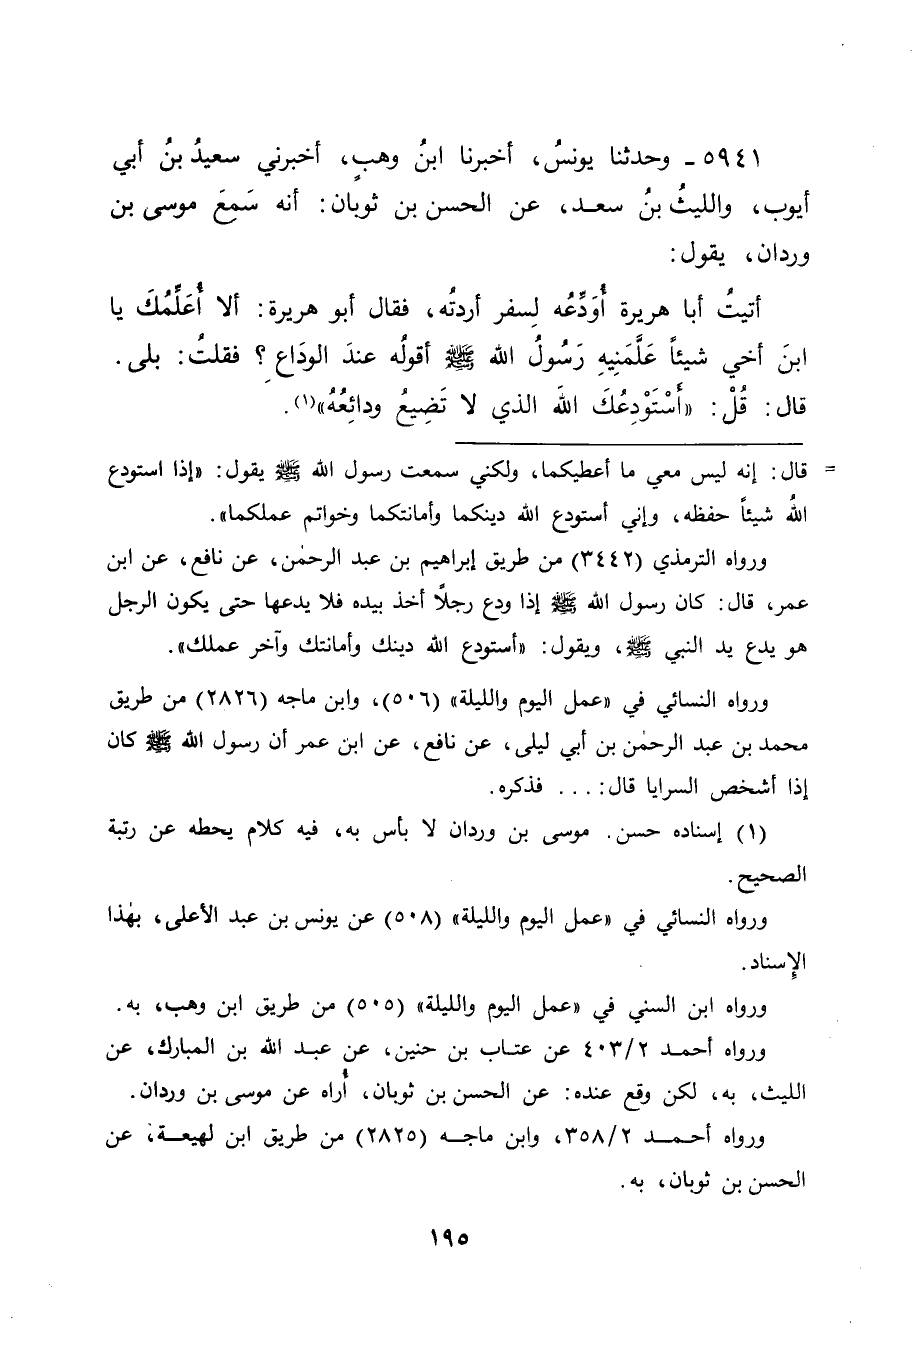 ٥٩٤١ ـ وحدثنا يونسُ، أخبرنا ابنُ وهبٍ، أخبرني سعيدُ بنُ أبي
أيوب، والليثُ بنُ سعـد، عن الحسن بن ثوبان: أنه سَمِعَ موسى بن
وردان، يقول:
أتيتُ أبا هريرة أُوَدِّعُه لِسفر أردتُه، فقال أبو هريرة: ألا أُعَلِّمُكَ يا
ابنَ أخي شيئاً عَلَّمَنِيهِ رَسُولُ الله ﷺ أقولُه عندَ الودَاعِ؟ فقلتُ: بلى.
قال: قُلْ: «أَسْتَوْدِعُكَ اللهَ الذي لا تَضِيعُ ودائِعُهُ»(١).
= قال: إنه ليس معي ما أعطيكما، ولكني سمعت رسول الله ﷺ يقول: «إذا استودع
اللهُ شيئاً حفظه، وإني أستودع الله دينكما وأمانتكما وخواتم عملكما».
ورواه الترمذي (٣٤٤٢) من طريق إبراهيم بن عبد الرحمٰن، عن نافع، عن ابن
عمر، قال: كان رسول الله ﷺ إذا ودع رجلاً أخذ بيده فلا يدعها حتى يكون الرجل
هو يدع يد النبي ﷺ، ويقول: «أستودع الله دينك وأمانتك وآخر عملك».
ورواه النسائي في «عمل اليوم والليلة» (٥٠٦)، وابن ماجه (٢٨٢٦) من طريق
محمد بن عبد الرحمٰن بن أبي ليلى، عن نافع، عن ابن عمر أن رسول الله ﷺ كان
إذا أشخص السرايا قال: ... فذكره.
(١) إسناده حسن. موسى بن وردان لا بأس به، فيه كلام يحطه عن رتبة
الصحيح.
ورواه النسائي في «عمل اليوم والليلة» (٥٠٨) عن يونس بن عبد الأعلى، بهٰذا
الإِسناد.
ورواه ابن السني في «عمل اليوم والليلة» (٥٠٥) من طريق ابن وهب، به.
ورواه أحمـد ٤٠٣/٢ عن عتـاب بن حنين، عن عبـد الله بن المبارك، عن
الليث، به، لكن وقع عنده: عن الحسن بن ثوبان، أُراه عن موسى بن وردان.
ورواه أحـمـد ٣٥٨/٢، وابن ماجـه (٢٨٢٥) من طريق ابن لهيعـة، عن
الحسن بن ثوبان، به.
١٩٥